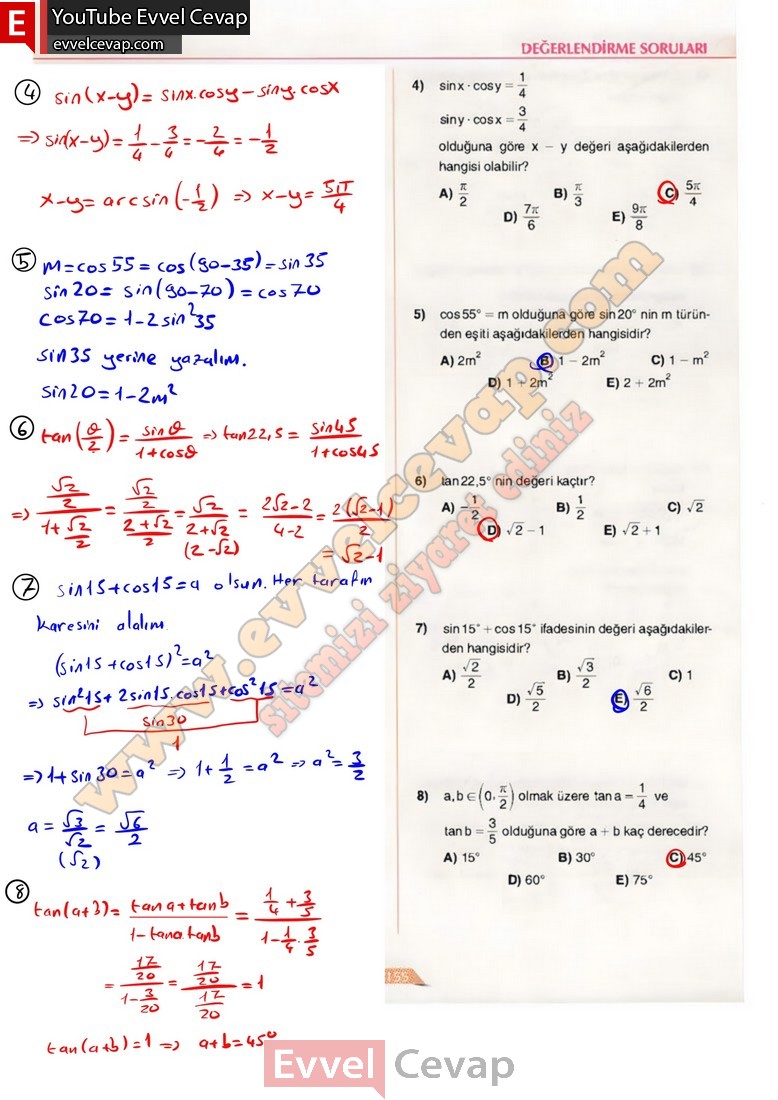 E YouTube Evvel Cevap
evvelcevap.com
DEĞERLENDİRME SORULARI
④ sin(x-y) = sinx.cosy - siny.cosx
⇒ sin(x-y) = 1/4 - 3/4 = -2/4 = -1/2
x-y = arcsin(-1/2) ⇒ x-y = 5π/4
⑤ m = cos55 = cos(90-35) = sin35
sin20 = sin(90-70) = cos70
cos70 = 1-2sin²35
sin35 yerine yazalım.
sin20 = 1-2m²
⑥ tan(θ/2) = sinθ/1+cosθ ⇒ tan22,5 = sin45/1+cos45
⇒ √2/2 / 1+√2/2 = √2/2 / 2+√2/2 = √2/2+√2 = 2√2-2/4-2 = 2(√2-1)/2
(2-√2)
= √2-1
⑦ sin15+cos15=a olsun. Her tarafın
karesini alalım
(sin15+cos15)² = a²
⇒ sin²15 + 2sin15.cos15 + cos²15 = a²
sin30
1
⇒ 1+sin30 = a² ⇒ 1+1/2 = a² ⇒ a² = 3/2
a = √3/√2 = √6/2
(√2)
⑧ tan(a+3) = tana+tanb/1-tana.tanb = 1/4+3/5 / 1-1/4.3/5
= 17/20 / 1-3/20 = 17/20 / 17/20 = 1
tan(a+b)=1 ⇒ a+b=45°
4) sinx · cosy = 1/4
siny · cosx = 3/4
olduğuna göre x − y değeri aşağıdakilerden
hangisi olabilir?
A) π/2 B) π/3 C) 5π/4
D) 7π/6 E) 9π/8
5) cos55° = m olduğuna göre sin20° nin m türün-
den eşiti aşağıdakilerden hangisidir?
A) 2m² B) 1 − 2m² C) 1 − m²
D) 1 + 2m² E) 2 + 2m²
6) tan22,5° nin değeri kaçtır?
A) −1/2 B) 1/2 C) √2
D) √2 − 1 E) √2 + 1
7) sin15° + cos15° ifadesinin değeri aşağıdakiler-
den hangisidir?
A) √2/2 B) √3/2 C) 1
D) √5/2 E) √6/2
8) a,b ∈ (0, π/2) olmak üzere tana = 1/4 ve
tanb = 3/5 olduğuna göre a + b kaç derecedir?
A) 15° B) 30° C) 45°
D) 60° E) 75°
155
www.evvelcevap.com
sitemizi ziyaret ediniz
Evvel Cevap